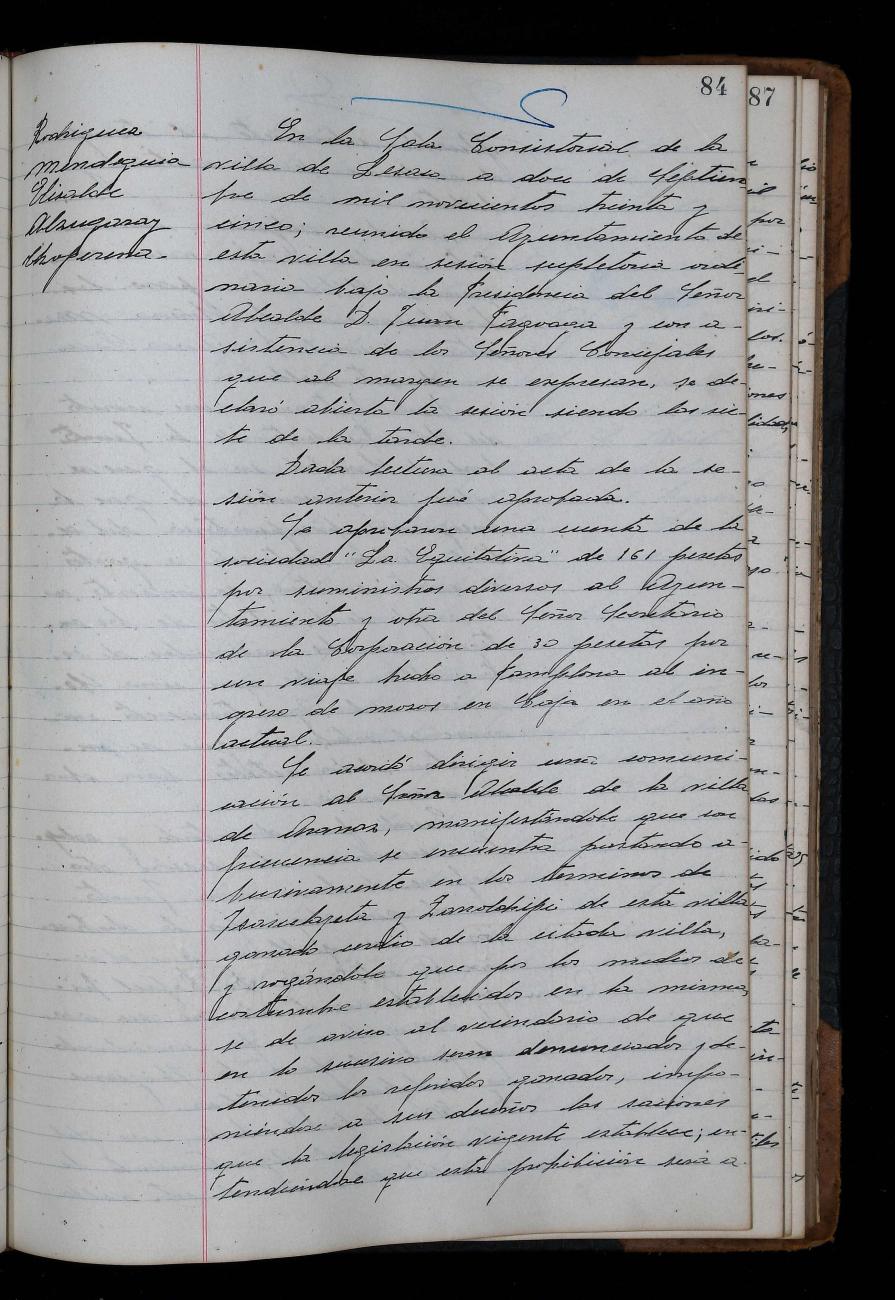 84
87
Rodriguez
Mendeguia
Elizalde
Alzugaray
Choperena.
En la Sala Consistorial de la
villa de Lesaca a doce de Septiem
bre de mil novecientos treinta y
cinco; reunido el Ayuntamiento de
esta villa en sesión supletoria ordi
naria bajo la Presidencia del Señor
Alcalde D. Juan y con a-
sistencia de los Señores Concejales
que al margen se expresan, se de-
claró abierta la sesión siendo las sie-
te de la tarde.
Dada lectura al acta de la se-
sión anterior fué aprobada.
Se aprobaron una cuenta de la
sociedad "La Equitativa" de 161 pesetas
por suministros diversos al Ayun-
tamiento y otra del Señor Secretario
de la Corporación de 30 pesetas por
un viaje hecho a Pamplona al in-
greso de mozos en Caja en el año
actual.-
Se acordó dirigir una comuni-
cación al Señor Alcalde de la villa
de Aranaz, manifestándole que con
frecuencia se encuentra pastando a-
busivamente en los terminos de
y de esta villa
ganado cerdío de la citada villa,
y rogándole que por los medios de
costumbre establecidos en la misma,
se de aviso al vecindario de que
en lo sucesivo seran denunciados y de-
tenidos los referidos ganados, impo-
niendose a sus dueños las saciones
que la legislación vigente establece; en-
tendiendose que esta prohibición será a